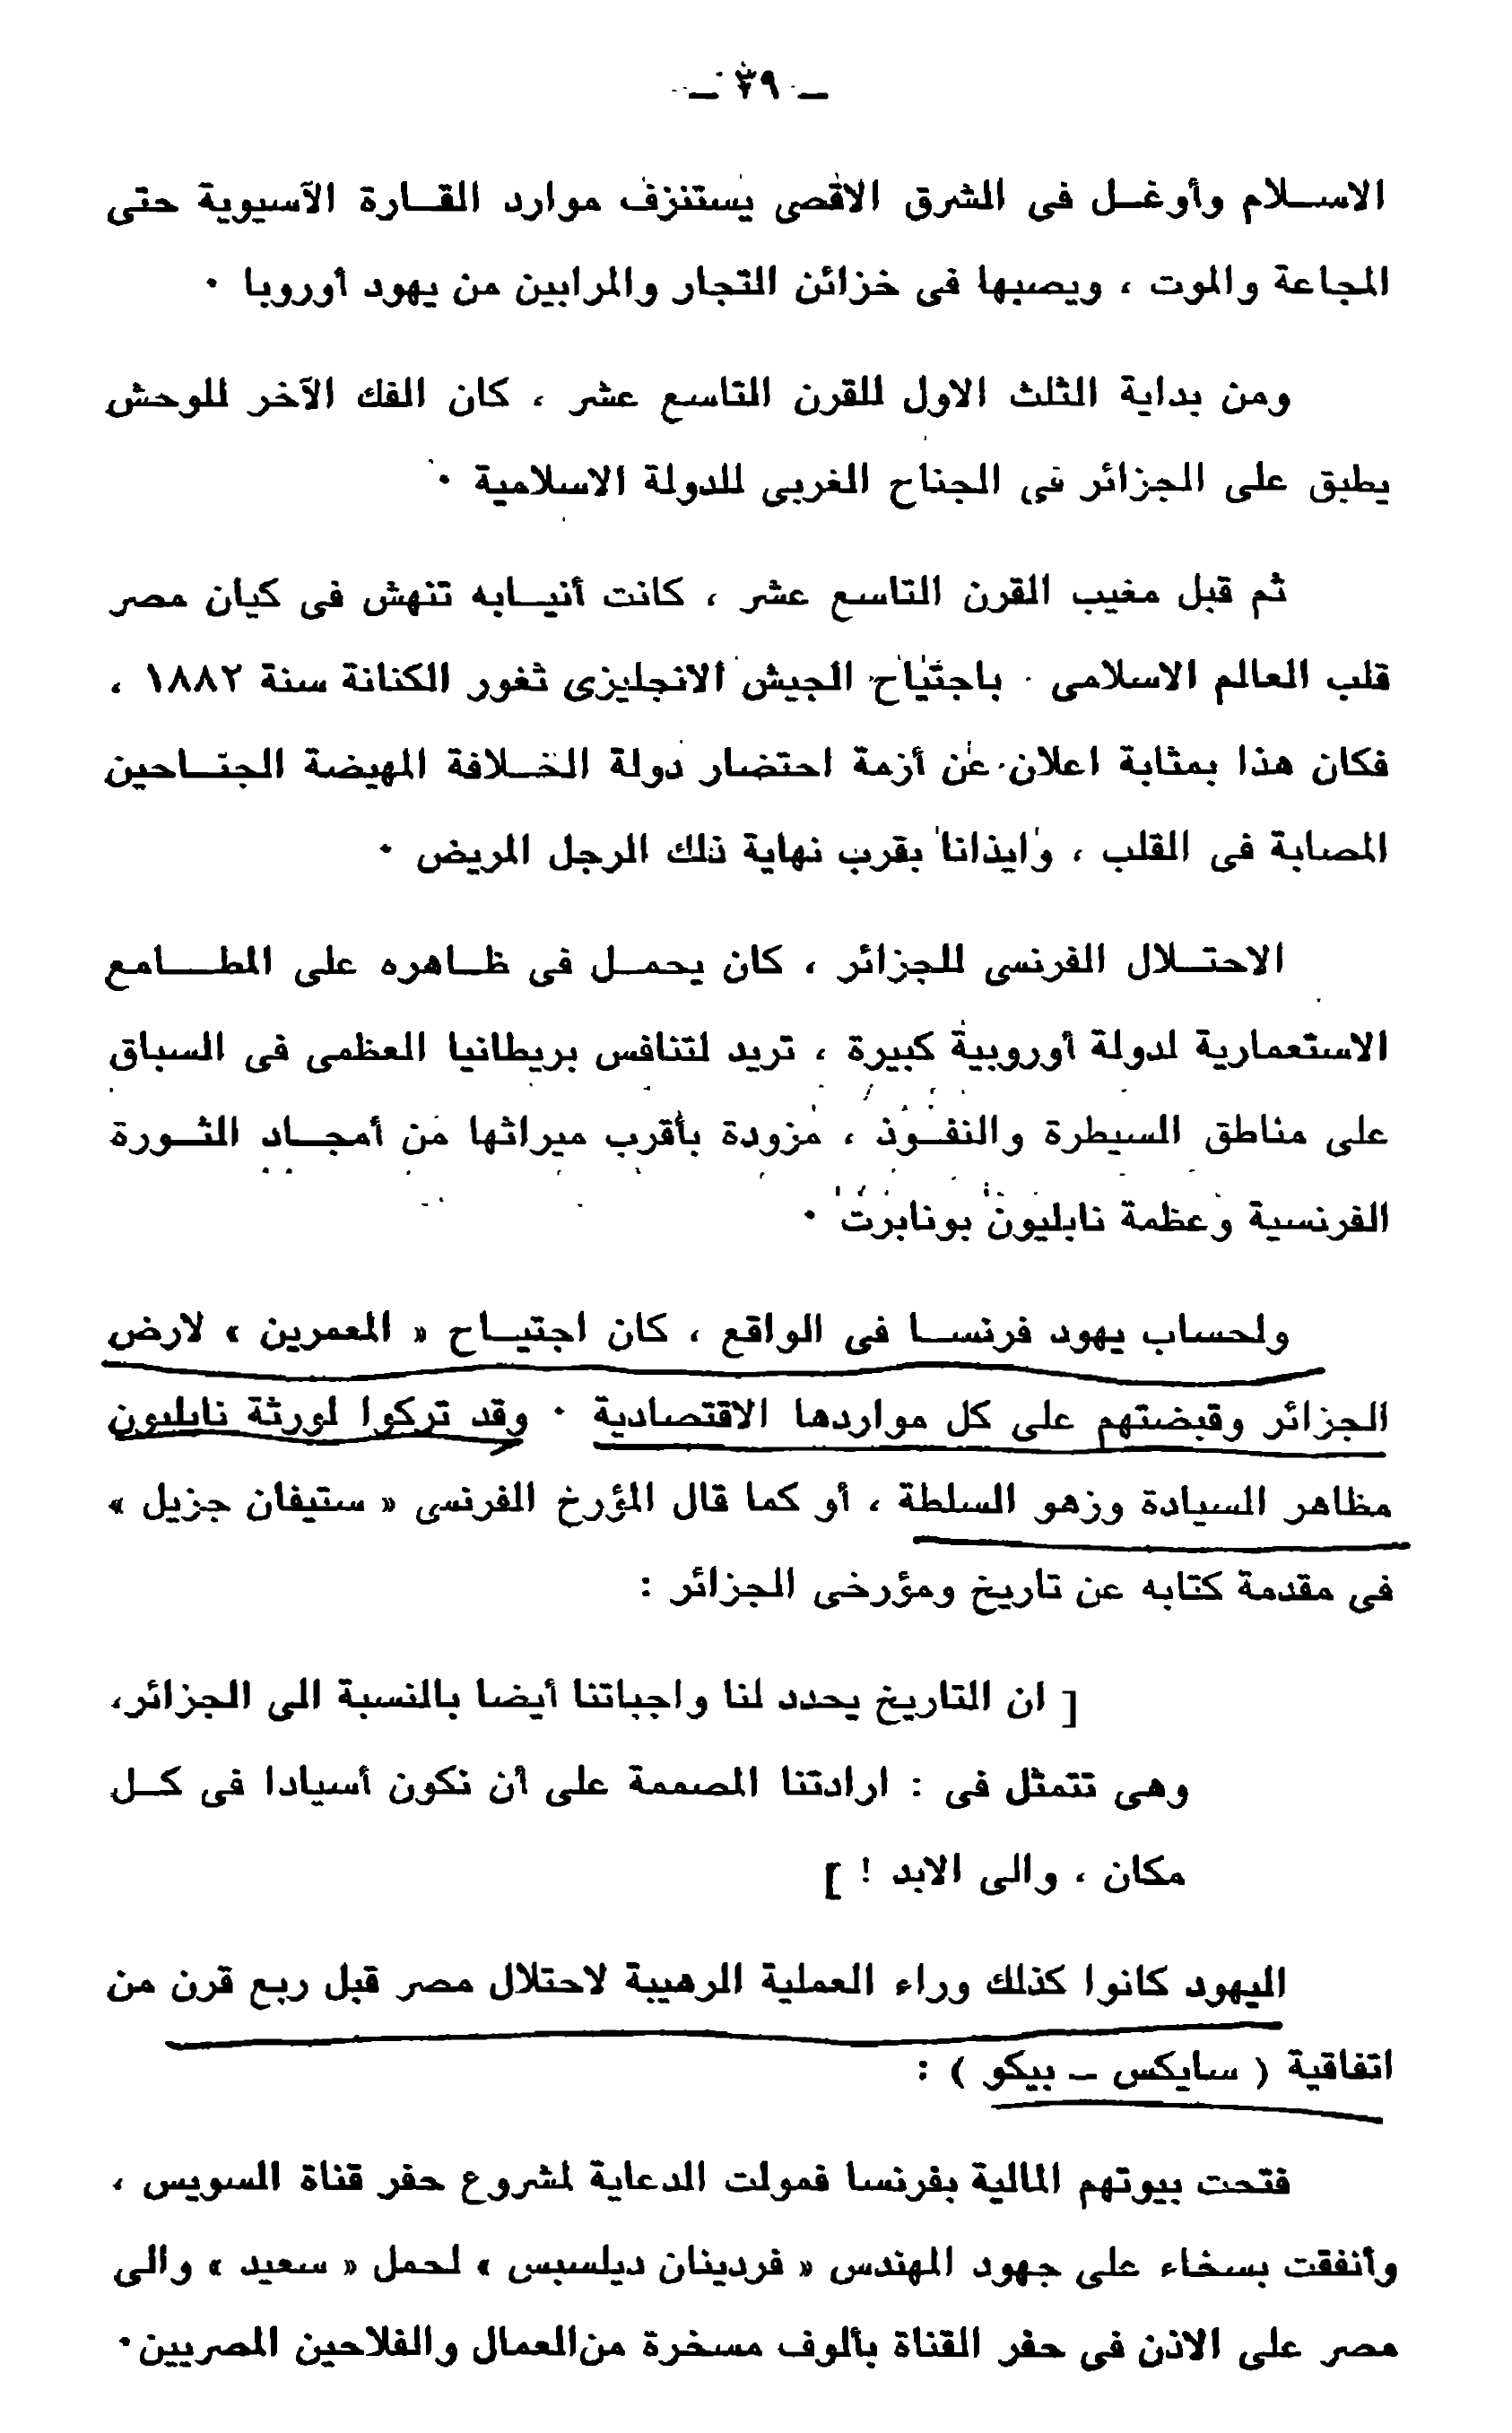 ـ ٣٩ ـ
الاسـلام وأوغـل فى الشرق الاقصى يستنزف موارد القـارة الآسيوية حتى
المجاعة والموت ، ويصبها فى خزائن التجار والمرابين من يهود أوروبا ٠
ومن بداية الثلث الاول للقرن التاسع عشر ، كان الفك الآخر للوحش
يطبق على الجزائر فى الجناح الغربى للدولة الاسلامية ٠
ثم قبل مغيب القرن التاسع عشر ، كانت أنيـابه تنهش فى كيان مصر
قلب العالم الاسلامى ٠ باجتياح الجيش الانجليزى ثغور الكنانة سنة ١٨٨٢ ،
فكان هذا بمثابة اعلان عن أزمة احتضار دولة الخـلافة المهيضة الجنـاحين
المصابة فى القلب ، وايذانا بقرب نهاية ذلك الرجل المريض ٠
الاحتـلال الفرنسى للجزائر ، كان يحمـل فى ظـاهره على المطـامع
الاستعمارية لدولة أوروبية كبيرة ، تريد لتنافس بريطانيا العظمى فى السباق
على مناطق السيطرة والنفـوذ ، مزودة بأقرب ميراثها من أمجـاد الثـورة
الفرنسية وعظمة نابليون بونابرت ٠
ولحساب يهود فرنسـا فى الواقع ، كان اجتيـاح « المعمرين » لارض
الجزائر وقبضتهم على كل مواردها الاقتصادية ٠ وقد تركوا لورثة نابليون
مظاهر السيادة وزهو السلطة ، أو كما قال المؤرخ الفرنسى « ستيفان جزيل »
فى مقدمة كتابه عن تاريخ ومؤرخى الجزائر :
[ ان التاريخ يحدد لنا واجباتنا أيضا بالنسبة الى الجزائر،
وهى تتمثل فى : ارادتنا المصممة على أن نكون أسيادا فى كـل
مكان ، والى الابد ! ]
اليهود كانوا كذلك وراء العملية الرهيبة لاحتلال مصر قبل ربع قرن من
اتفاقية ( سايكس ـ بيكو ) :
فتحت بيوتهم المالية بفرنسا فمولت الدعاية لمشروع حفر قناة السويس ،
وأنفقت بسخاء على جهود المهندس « فردينان ديلسبس » لحمل « سعيد » والى
مصر على الاذن فى حفر القناة بألوف مسخرة من العمال والفلاحين المصريين ٠